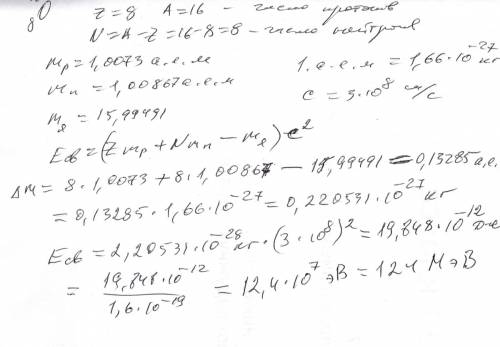 ₈O Z=8 A=16 - число протонов
N=A-Z=16-8=8 - число нейтронов
mp=1,0073 а.е.м 1.а.е.м=1,66·10⁻²⁷ кг
mn=1,00867 а.е.м c=3·10⁸ м/с
Mя=15,99491
Eсв=(Zmp+Nmn-Mя)c²
ΔM=8·1,0073+8·1,00867-15,99491=0,13285 а.е.
=0,13285·1,66·10⁻²⁷=0,220531·10⁻²⁷ кг
Eсв=2,20531·10⁻²⁸ кг·(3·10⁸)²=19,848·10⁻¹² Дж
=19,848·10⁻¹²/1,6·10⁻¹⁹=12,4·10⁷ эВ=124 МэВ